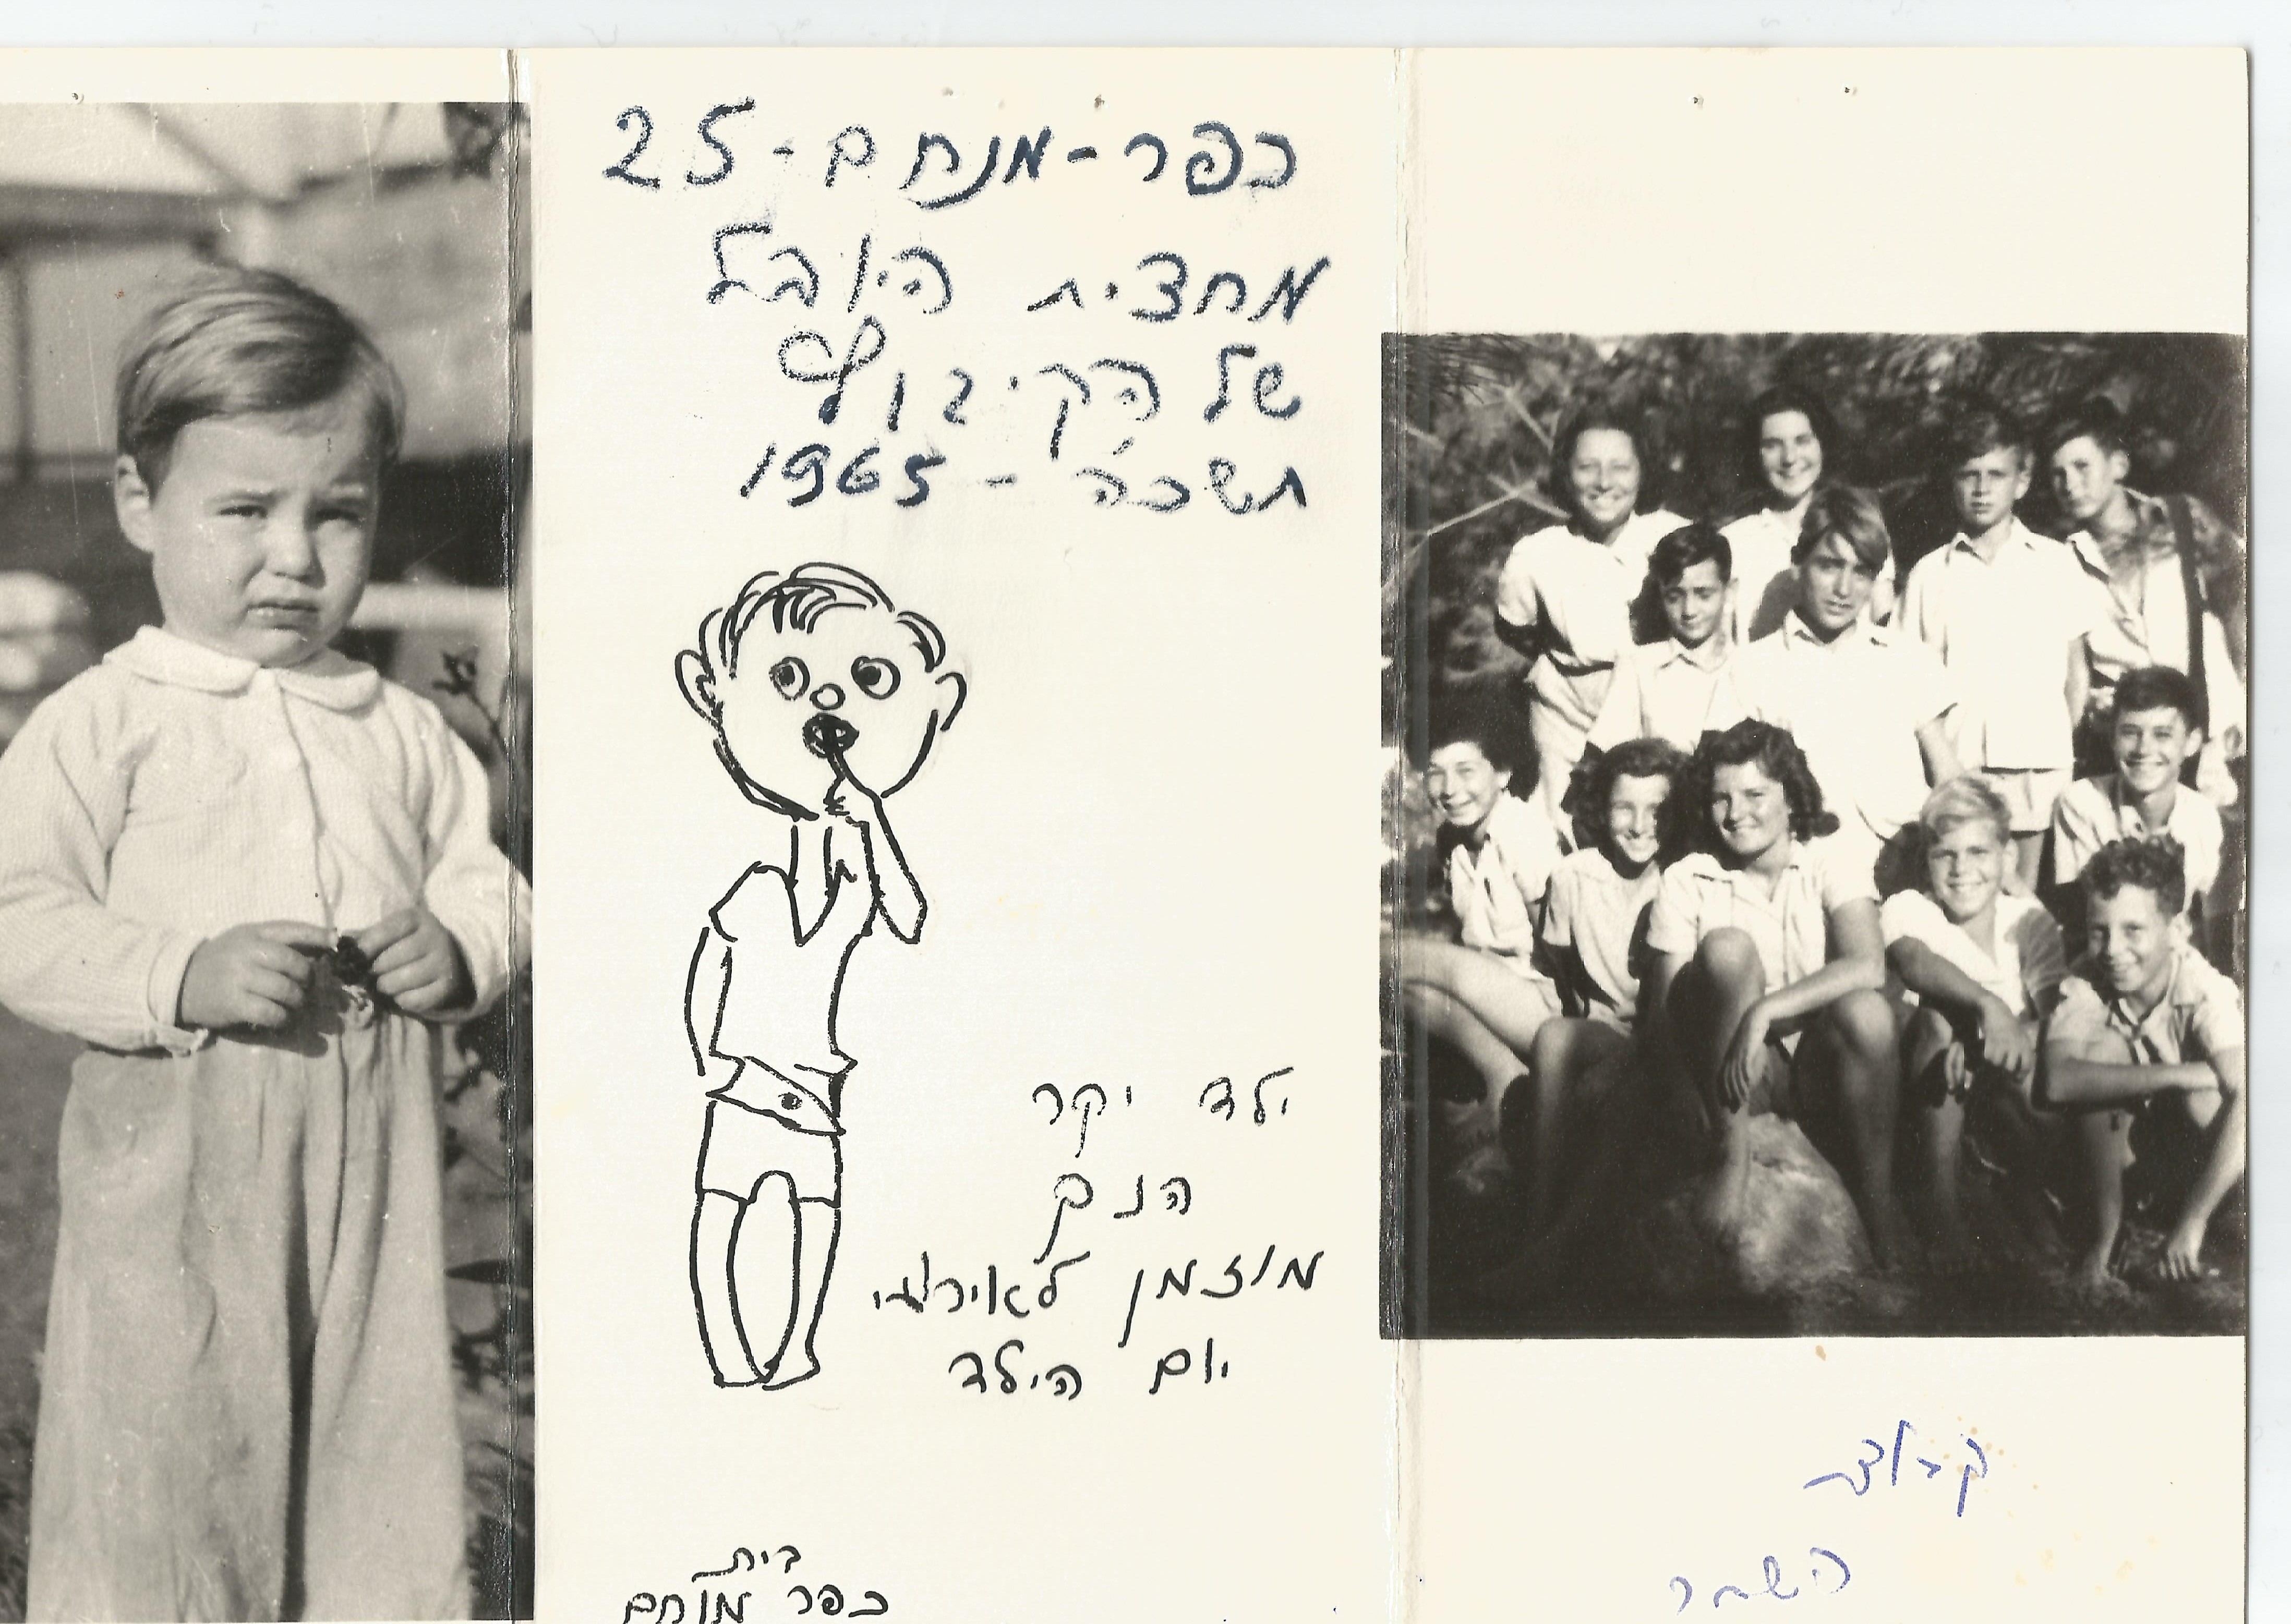 כפר-מנחם-25
מחצית היובל
של הקיבוץ
תשכ"ה - 1965
ילד יקר
הנך
מוזמן לאירועי
יום הילד
בית
כפר מנחם